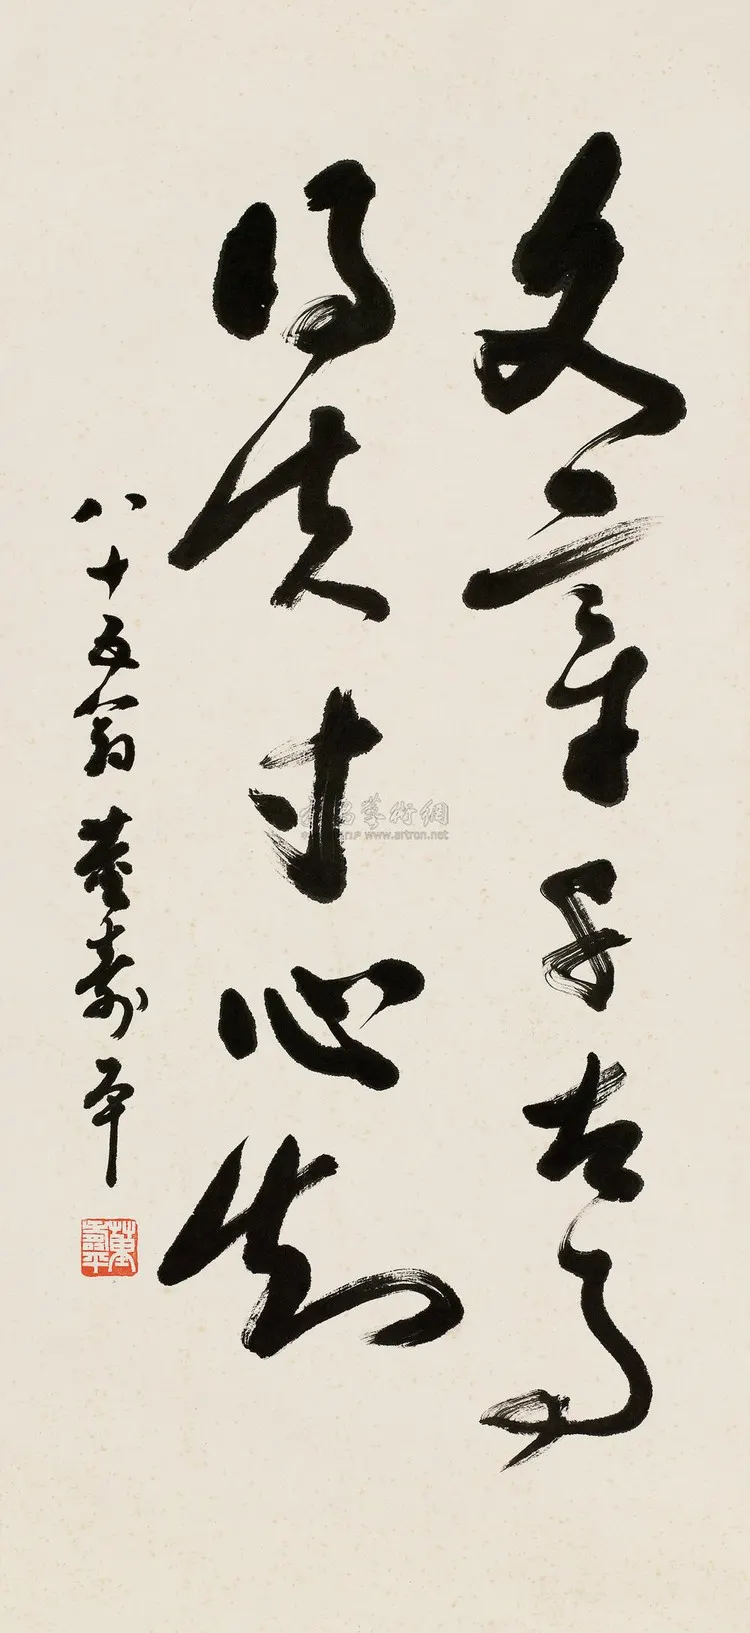 文章千古事
得失寸心知
八十五翁董寿平
董寿平
雅昌艺术網
www.artron.net